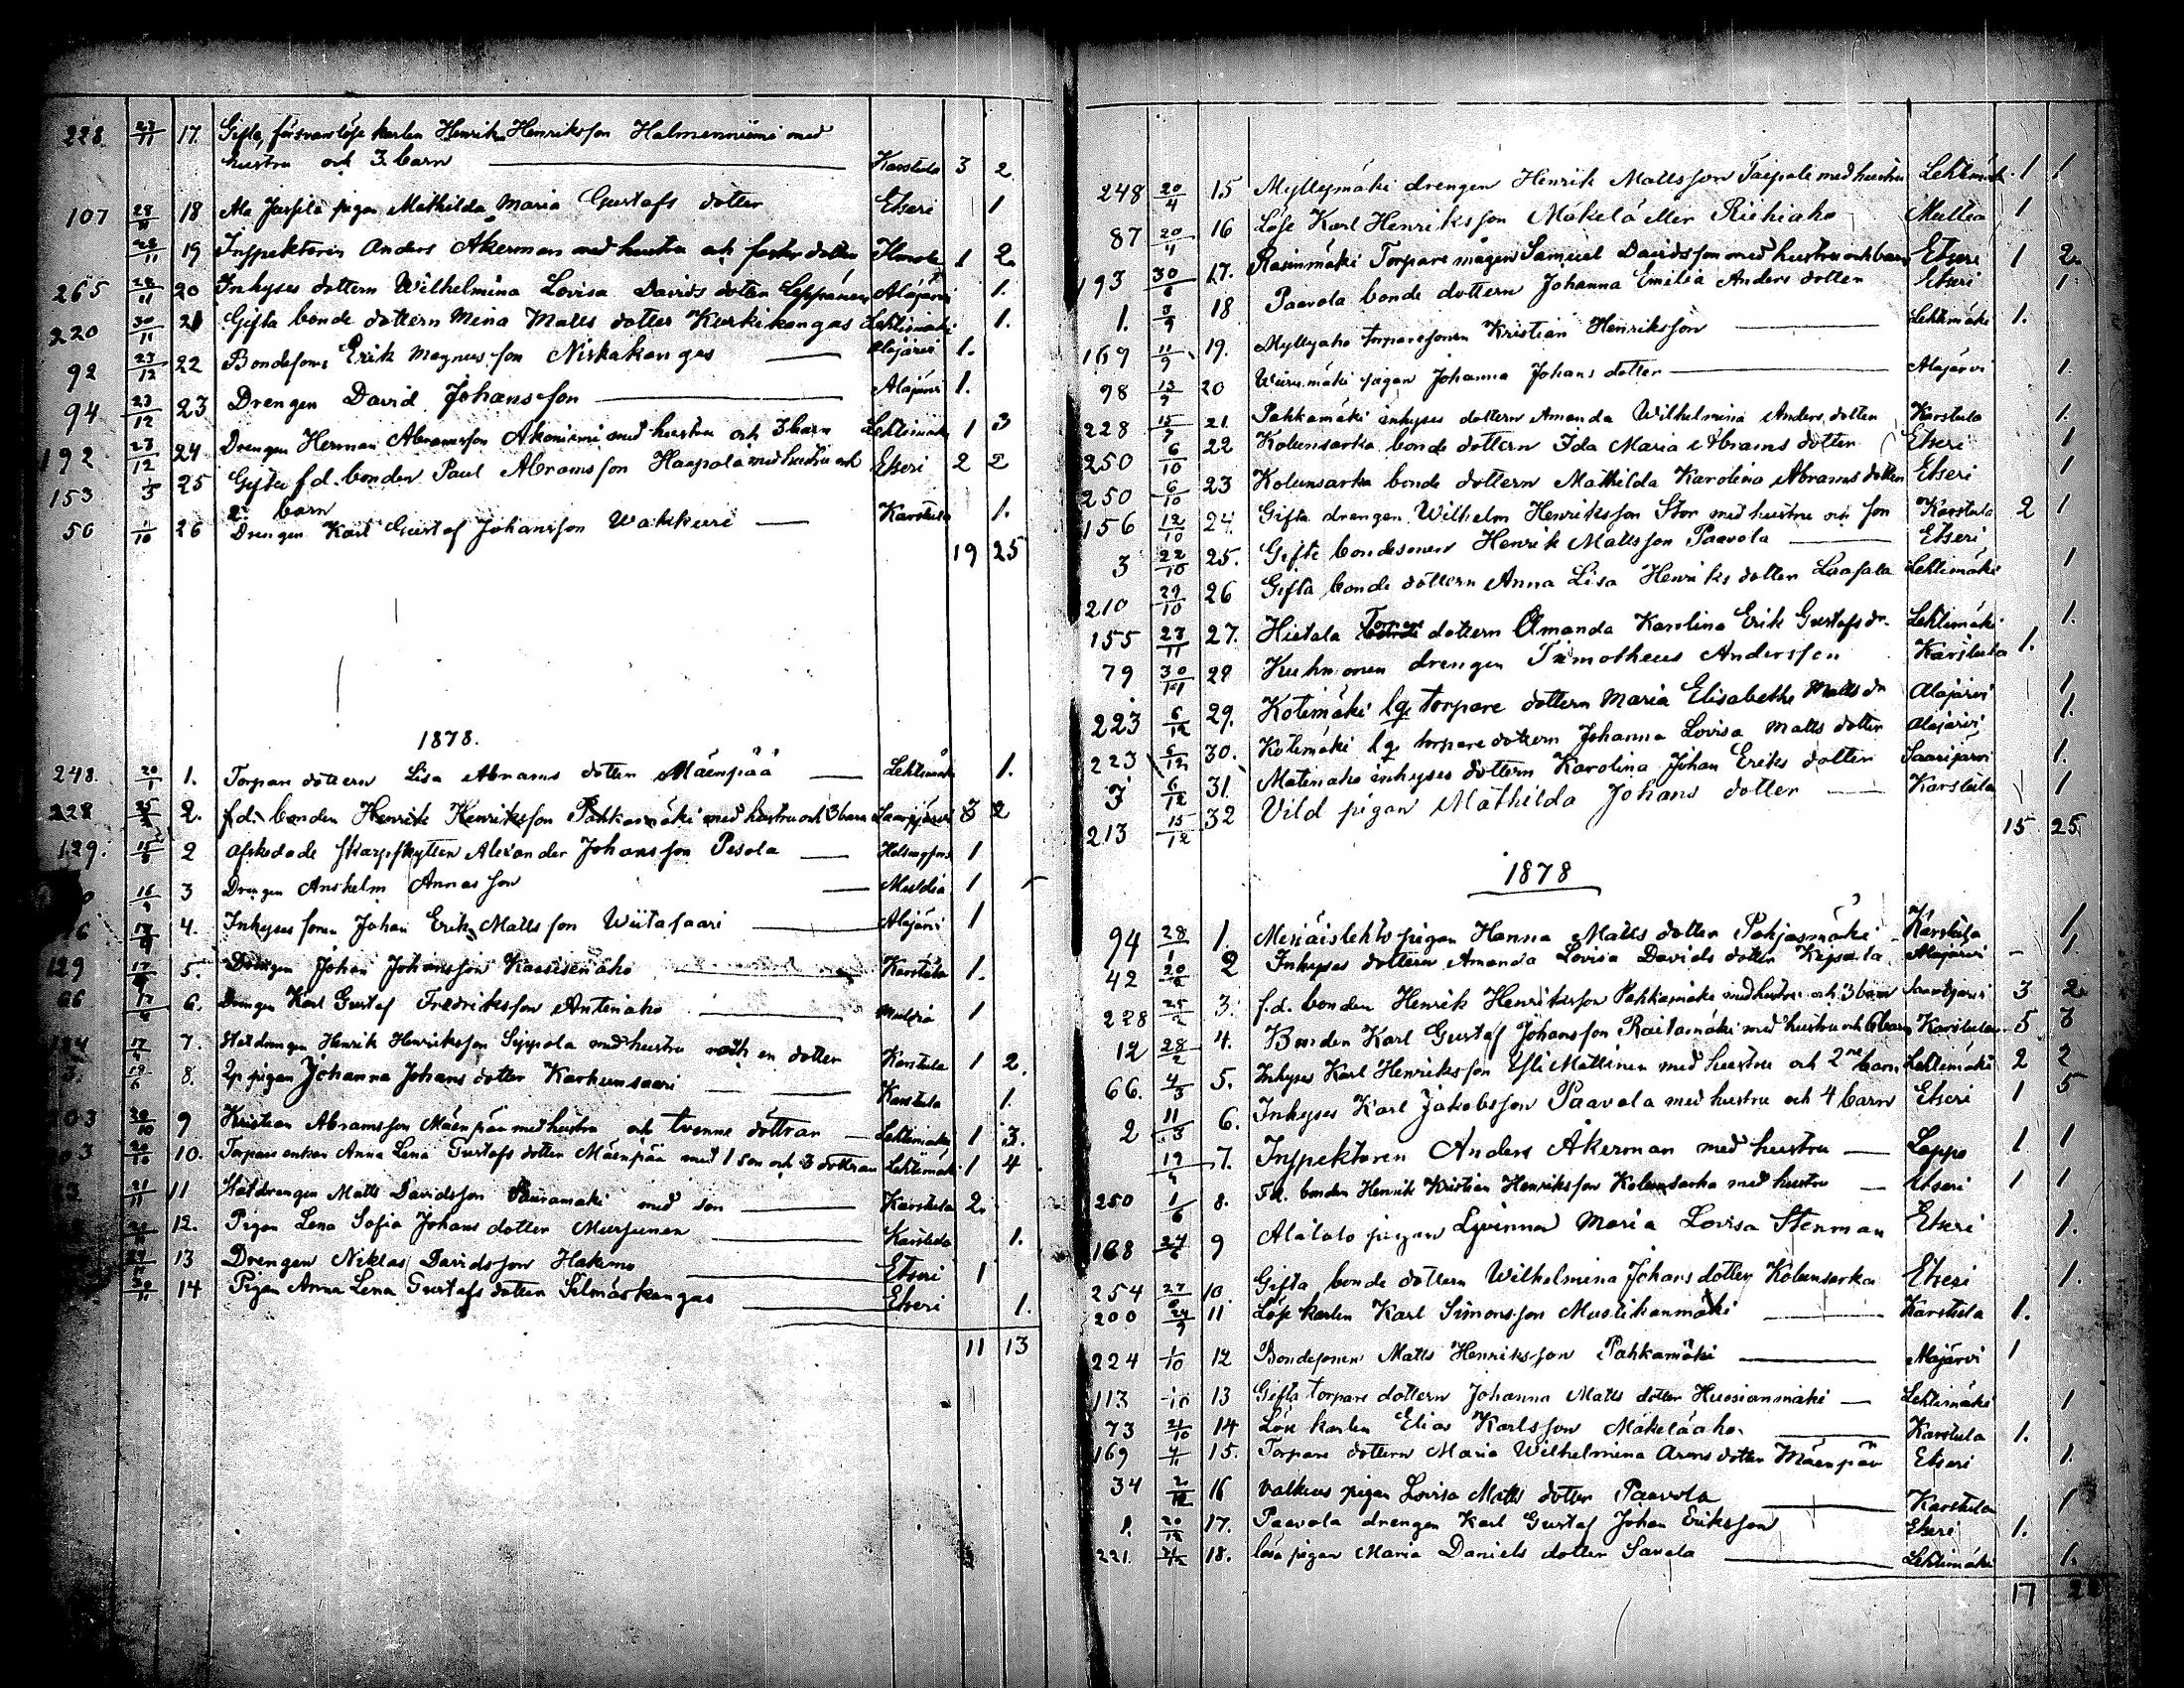 228. 27/11 17. Gifta, försvarslöse karlen Henrik Henriksson Halmenniemi med
hustru och 3 barn Karstula 3 2.
107 28/11 18 Ala pigan Mathilda Maria Gustafs dotter Etseri 1
28/11 19 Inspektoren Anders Åkerman med hustru och foster dotter 1 2.
265 28/11 20 Inhyses dottern Wilhelmina Lovisa Davids dotter Leppänen Alajärvi 1.
220 30/11 21 Gifta bonde dottern Mina Matts dotter Kurkikangas Lehtimäki 1.
92 23/12 22 Bondesonen Erik Magnusson Niskakangas Alajärvi 1.
94 23/12 23 Drengen David Johansson Alajärvi 1.
192 23/12 24 Drengen Herman Abramsson Akoniemi med hustru och 3 barn Lehtimäki 1 3
153 1/3 25 Gifta f.d. bonden Paul Abramsson Haapala med hustru och Etseri 2 2
2 barn
50 1/10 26 Drengen Karl Gustaf Johansson Wakkuri Karstula 1.
19 25
1878.
248. 20/1 1. Torpare dottern Lisa Abrams dotter Mäenpää Lehtimäki 1.
228 25/2 2. f.d. bonden Henrik Henriksson Pahkamäki med hustru och 3 barn Saarijärvi 3 2
129. 15/3 2 afskedade skarpskytten Alexander Johansson Pesola Helsingfors 1
16/4 3 Drengen Anshelm Annasson Multia 1
6 17/4 4. Inhyses sonen Johan Erik Mattsson Wiitasaari Alajärvi 1
129 17/4 5. Drengen Johan Johansson Karstula 1.
66 17/4 6. Drengen Karl Gustaf Fredriksson Antinaho Multia 1
17/4 7. Statdrengen Henrik Henriksson Sippola med hustru och en dotter Karstula 1 2.
8. pigan Johanna Johans dotter Karhunsaari Karstula 1.
203 20/10 9 Kristian Abramsson Mäenpää med hustru och tvenne döttrar Lehtimäki 1 3.
03 20/10 10. Torpare enkan Anna Lena Gustafs dotter Mäenpää med 1 son och 3 döttrar Lehtimäki 1 4
21/11 11 Statdrengen Matts Davidsson med son Karstula 2.
12. Pigan Lena Sofia Johans dotter Mursunen Karstula 1.
13 Drengen Niklas Davidsson Hakomo Etseri 1
14 Pigan Anna Lena Gustafs dotter Silmäskangas Etseri 1.
11 13
248 20/4 15 Myllymäki drengen Henrik Mattsson Taipale med hustru Lehtimäki 1 1
87 20/4 16 Löse Karl Henriksson Mäkelä eller Riihiaho Multia 1
193 30/6 17. Rasinmäki Torpare mågen Samuel Davidsson med hustru och barn Etseri 1 2.
1. 3/9 18 Paavola bonde dottern Johanna Emilia Anders dotter Etseri 1.
169 11/9 19. Myllyaho torparesonen Kristian Henriksson Lehtimäki 1.
98 13/9 20 pigan Johanna Johans dotter Alajärvi 1.
228 15/9 21. Pahkamäki inhyses dottern Amanda Wilhelmina Anders dotter Karstula 1.
250 6/10 22 Kolunsarka bonde dottern Ida Maria Abrams dotter Etseri 1
250 6/10 23 Kolunsarka bonde dottern Mathilda Karolina Abrams dotter Etseri 1
156 12/10 24. Gifta drengen Wilhelm Henriksson Stor med hustru och son Karstula 2 1
3 22/10 25. Gifte bondesonen Henrik Mattsson Paavola Etseri
210 29/10 26 Gifta bonde dottern Anna Lisa Henriks dotter Laasala Lehtimäki 1
155 27/11 27. Hietala Torpare dottern Amanda Karolina Erik Gustafs dr. Lehtimäki 1.
79 30/11 28 Kuhmonen drengen Timotheus Andersson Karstula 1.
223 6/12 29. Kotimäki lge torpare dottern Maria Elisabetha Matts dr Alajärvi 1.
223 6/12 30. Kotimäki lge torpare dottern Johanna Lovisa Matts dotter Alajärvi 1.
3 6/12 31. Matinaho inhyses dottern Karolina Johan Eriks dotter Saarijärvi 1.
213 15/12 32 Vild pigan Mathilda Johans dotter Karstula 1
15 25.
1878
94 28/1 1. pigan Hanna Matts dotter Pohjasmäki Karstula 1
42 20/2 2 Inhyses dottern Amanda Lovisa Davids dotter Alajärvi - 1.
228 25/2 3. f.d. bonden Henrik Henriksson Pahkamäki med hustru och 3 barn Saarijärvi 3 2.
12 28/2 4. Bonden Karl Gustaf Johansson Raitamäki med hustru och 6 barn Karstula 5 3
66. 4/3 5. Inhyses Karl Henriksson Mattinen med hustru och 2ne barn Lehtimäki 2 2
2 11/3 6. Inhyses Karl Jakobsson Paavola med hustru och 4 barn Etseri 1 5
19/4 7. Inspektoren Anders Åkerman med hustru Lappo 1 1
250 1/6 8. F.d. bonden Henrik Kristian Henriksson Kolunsarka med hustru Etseri 1 1
168 24/6 9 Alatalo pigan Maria Lovisa Stenman Etseri 1.
254 27/6 10 Gifta bonde dottern Wilhelmina Johans dotter Kolunsarka Etseri 1.
200 24/9 11 Löse karlen Karl Simonsson Mustikanmäki Karstula 1.
224 1/10 12 Bondesonen Matts Henriksson Pahkamäki Alajärvi 1
113 13 Gifta torpare dottern Johanna Matts dotter Huosianmäki Lehtimäki 1
73 21/10 14 Löse karlen Elias Karlsson Mäkeläaho Karstula 1.
169 15. Torpare dottern Maria Wilhelmina Arons dotter Mäenpää Etseri 1.
34 2/12 16 Valkeus pigan Lovisa Matts dotter Paavola Karstula 1
1. 20/12 17. Paavola drengen Karl Gustaf Johan Eriksson Etseri 1.
221. 18. lösa pigan Maria Daniels dotter Savola Lehtimäki 1.
17